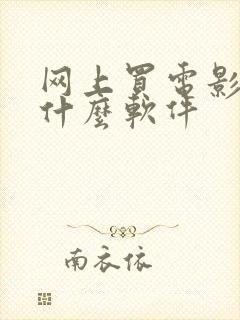 网上買電影
什麼軟件
南衣依